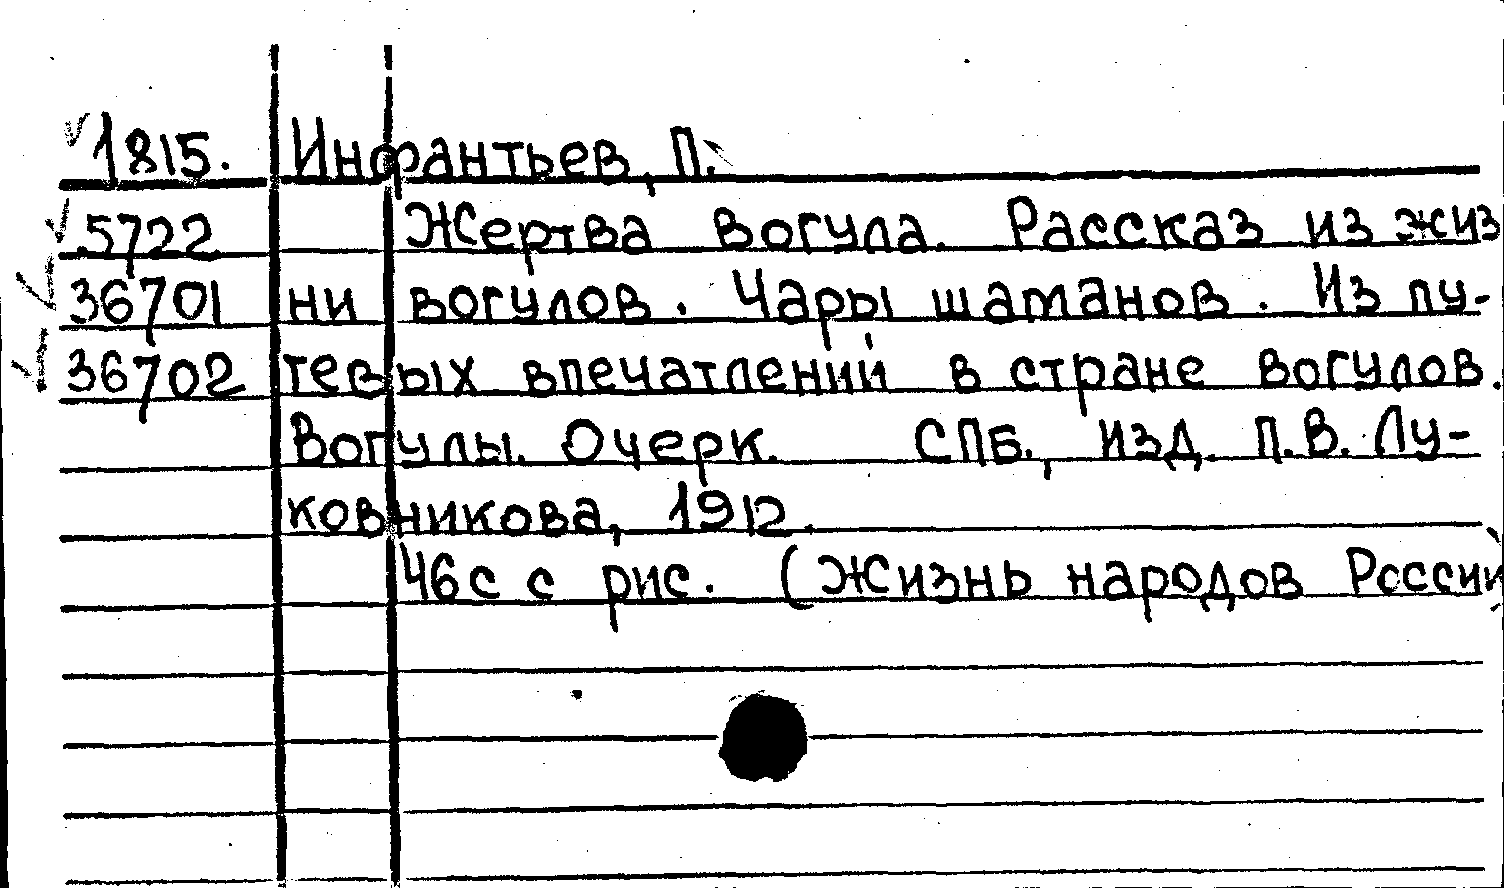 1815. Инфантьев, П.
5722 Жертва вогула. Рассказ из жиз
36701 ни вогулов. Чары шаманов. Из пу-
36702 тевых впечатлений в стране вогулов.
Вогулы. Очерк. СПБ., изд. П.В. Лу-
ковникова, 1912.
46с с рис. (Жизнь народов России